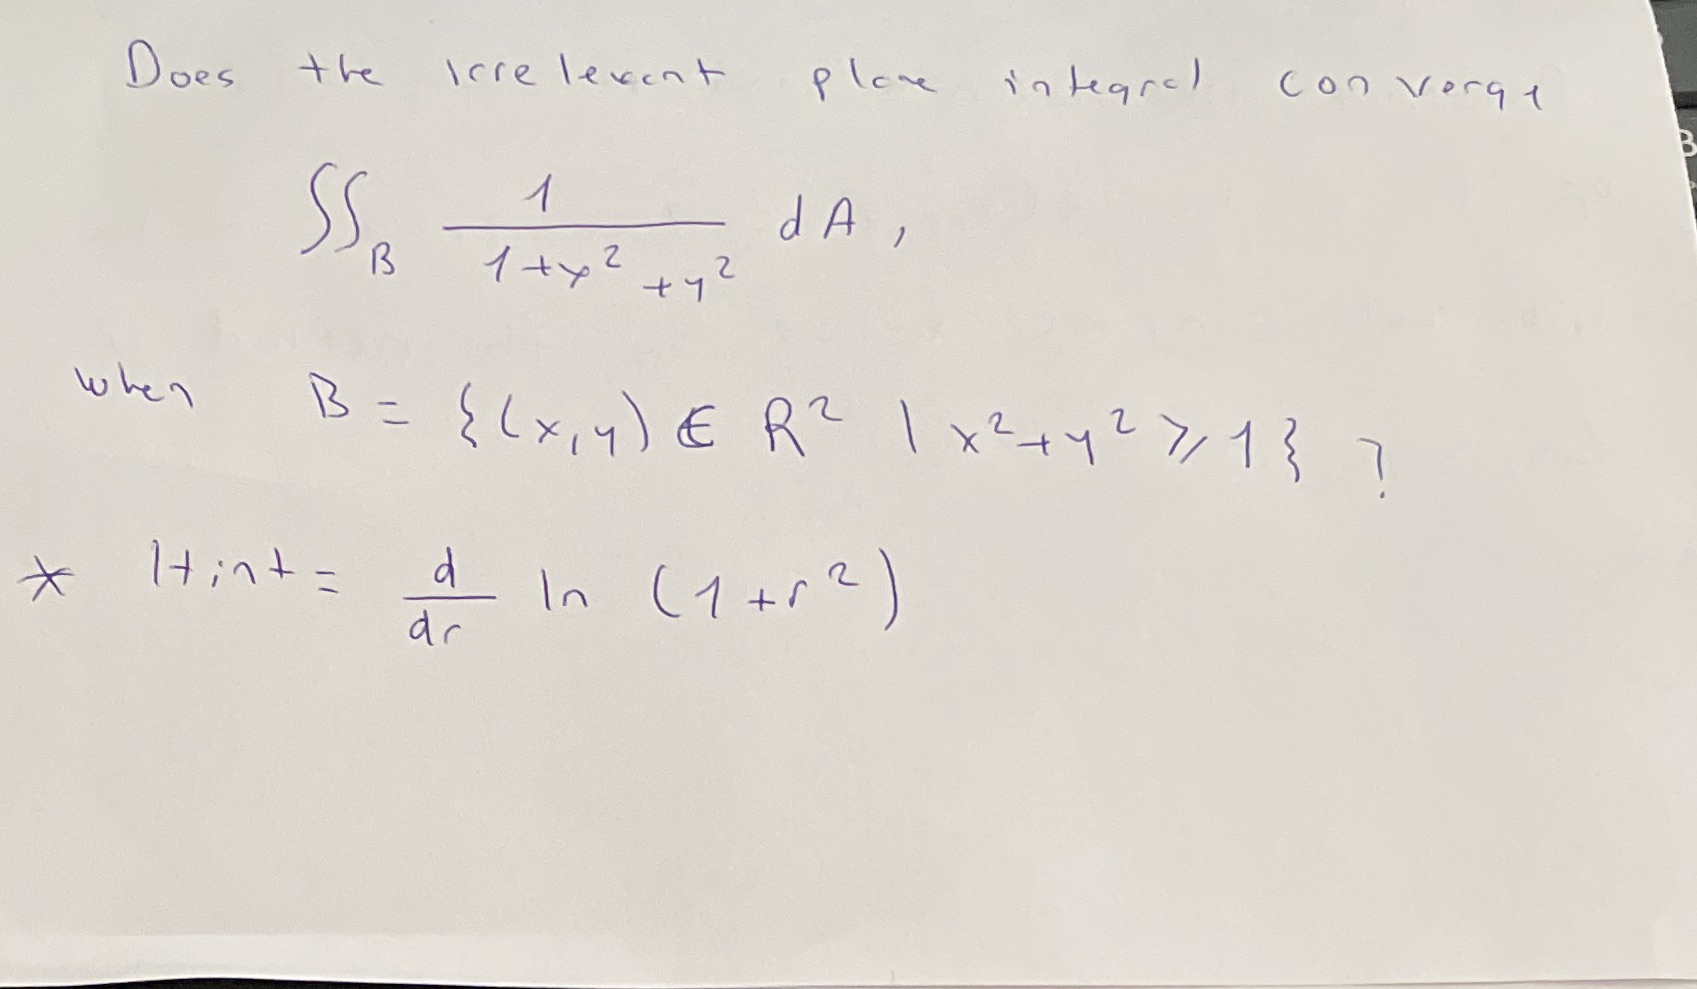 Does the irrelevant plane integral converge
∬_B 1/(1+x²+y²) dA,
when B = {(x,y) ∈ R² | x²+y² ≥ 1} ?
* Hint = d/dr ln (1+r²)
B